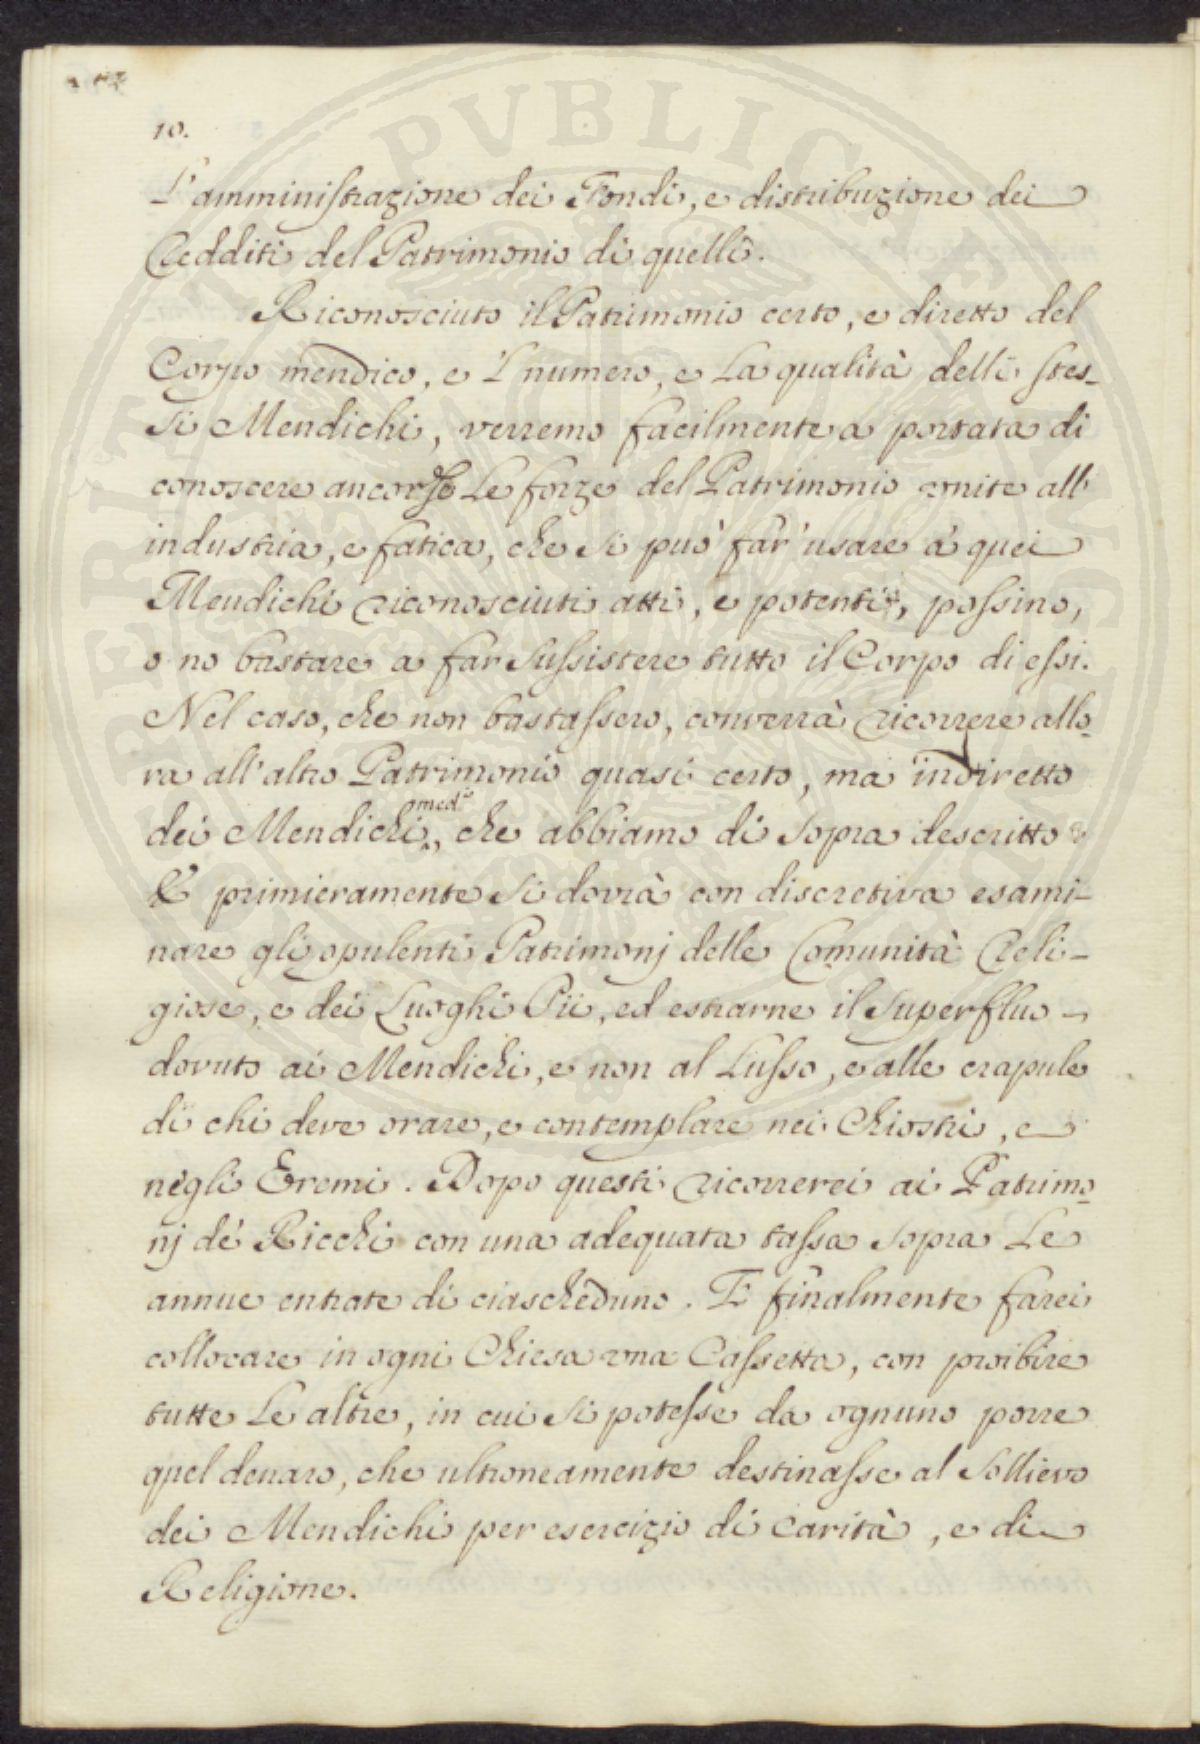 10.
L'amministrazione dei Fondi, e distribuzione dei
Redditi del Patrimonio di quelli.
Riconosciuto il Patrimonio certo, e diretto del
Corpo mendico, e 'l numero, e la qualità delli stes-
si Mendichi, verremo facilmente a portata di
conoscere ancor se le forze del Patrimonio unite all'
industria, e fatica, che si può far' usare a quei
Mendichi riconosciuti atti, e potenti, possino,
o no bastare a far sussistere tutto il Corpo di essi.
Nel caso, che non bastassero, converrà ricorrere allo-
ra all'altro Patrimonio quasi certo, ma indiretto
dei Mendichi med.i, che abbiamo di sopra descritto
E primieramente si dovrà con discretiva esami-
nare gli opulenti Patrimonj delle Comunità Reli-
giose, e dei Luoghi Pii, ed estrarne il superfluo
dovuto ai Mendichi, e non al Lusso, e alle crapule
di chi deve orare, e contemplare nei Chiostri, e
negli Eremi. Dopo questi ricorrerei ai Patrimo-
nj de' Ricchi con una adequata tassa sopra le
annue entrate di ciascheduno. E finalmente farei
collocare in ogni Chiesa una Cassetta, con proibire
tutte le altre, in cui si potesse da ognuno porre
quel denaro, che ultroneamente destinasse al sollievo
dei Mendichi per esercizio di carità, e di
Religione.